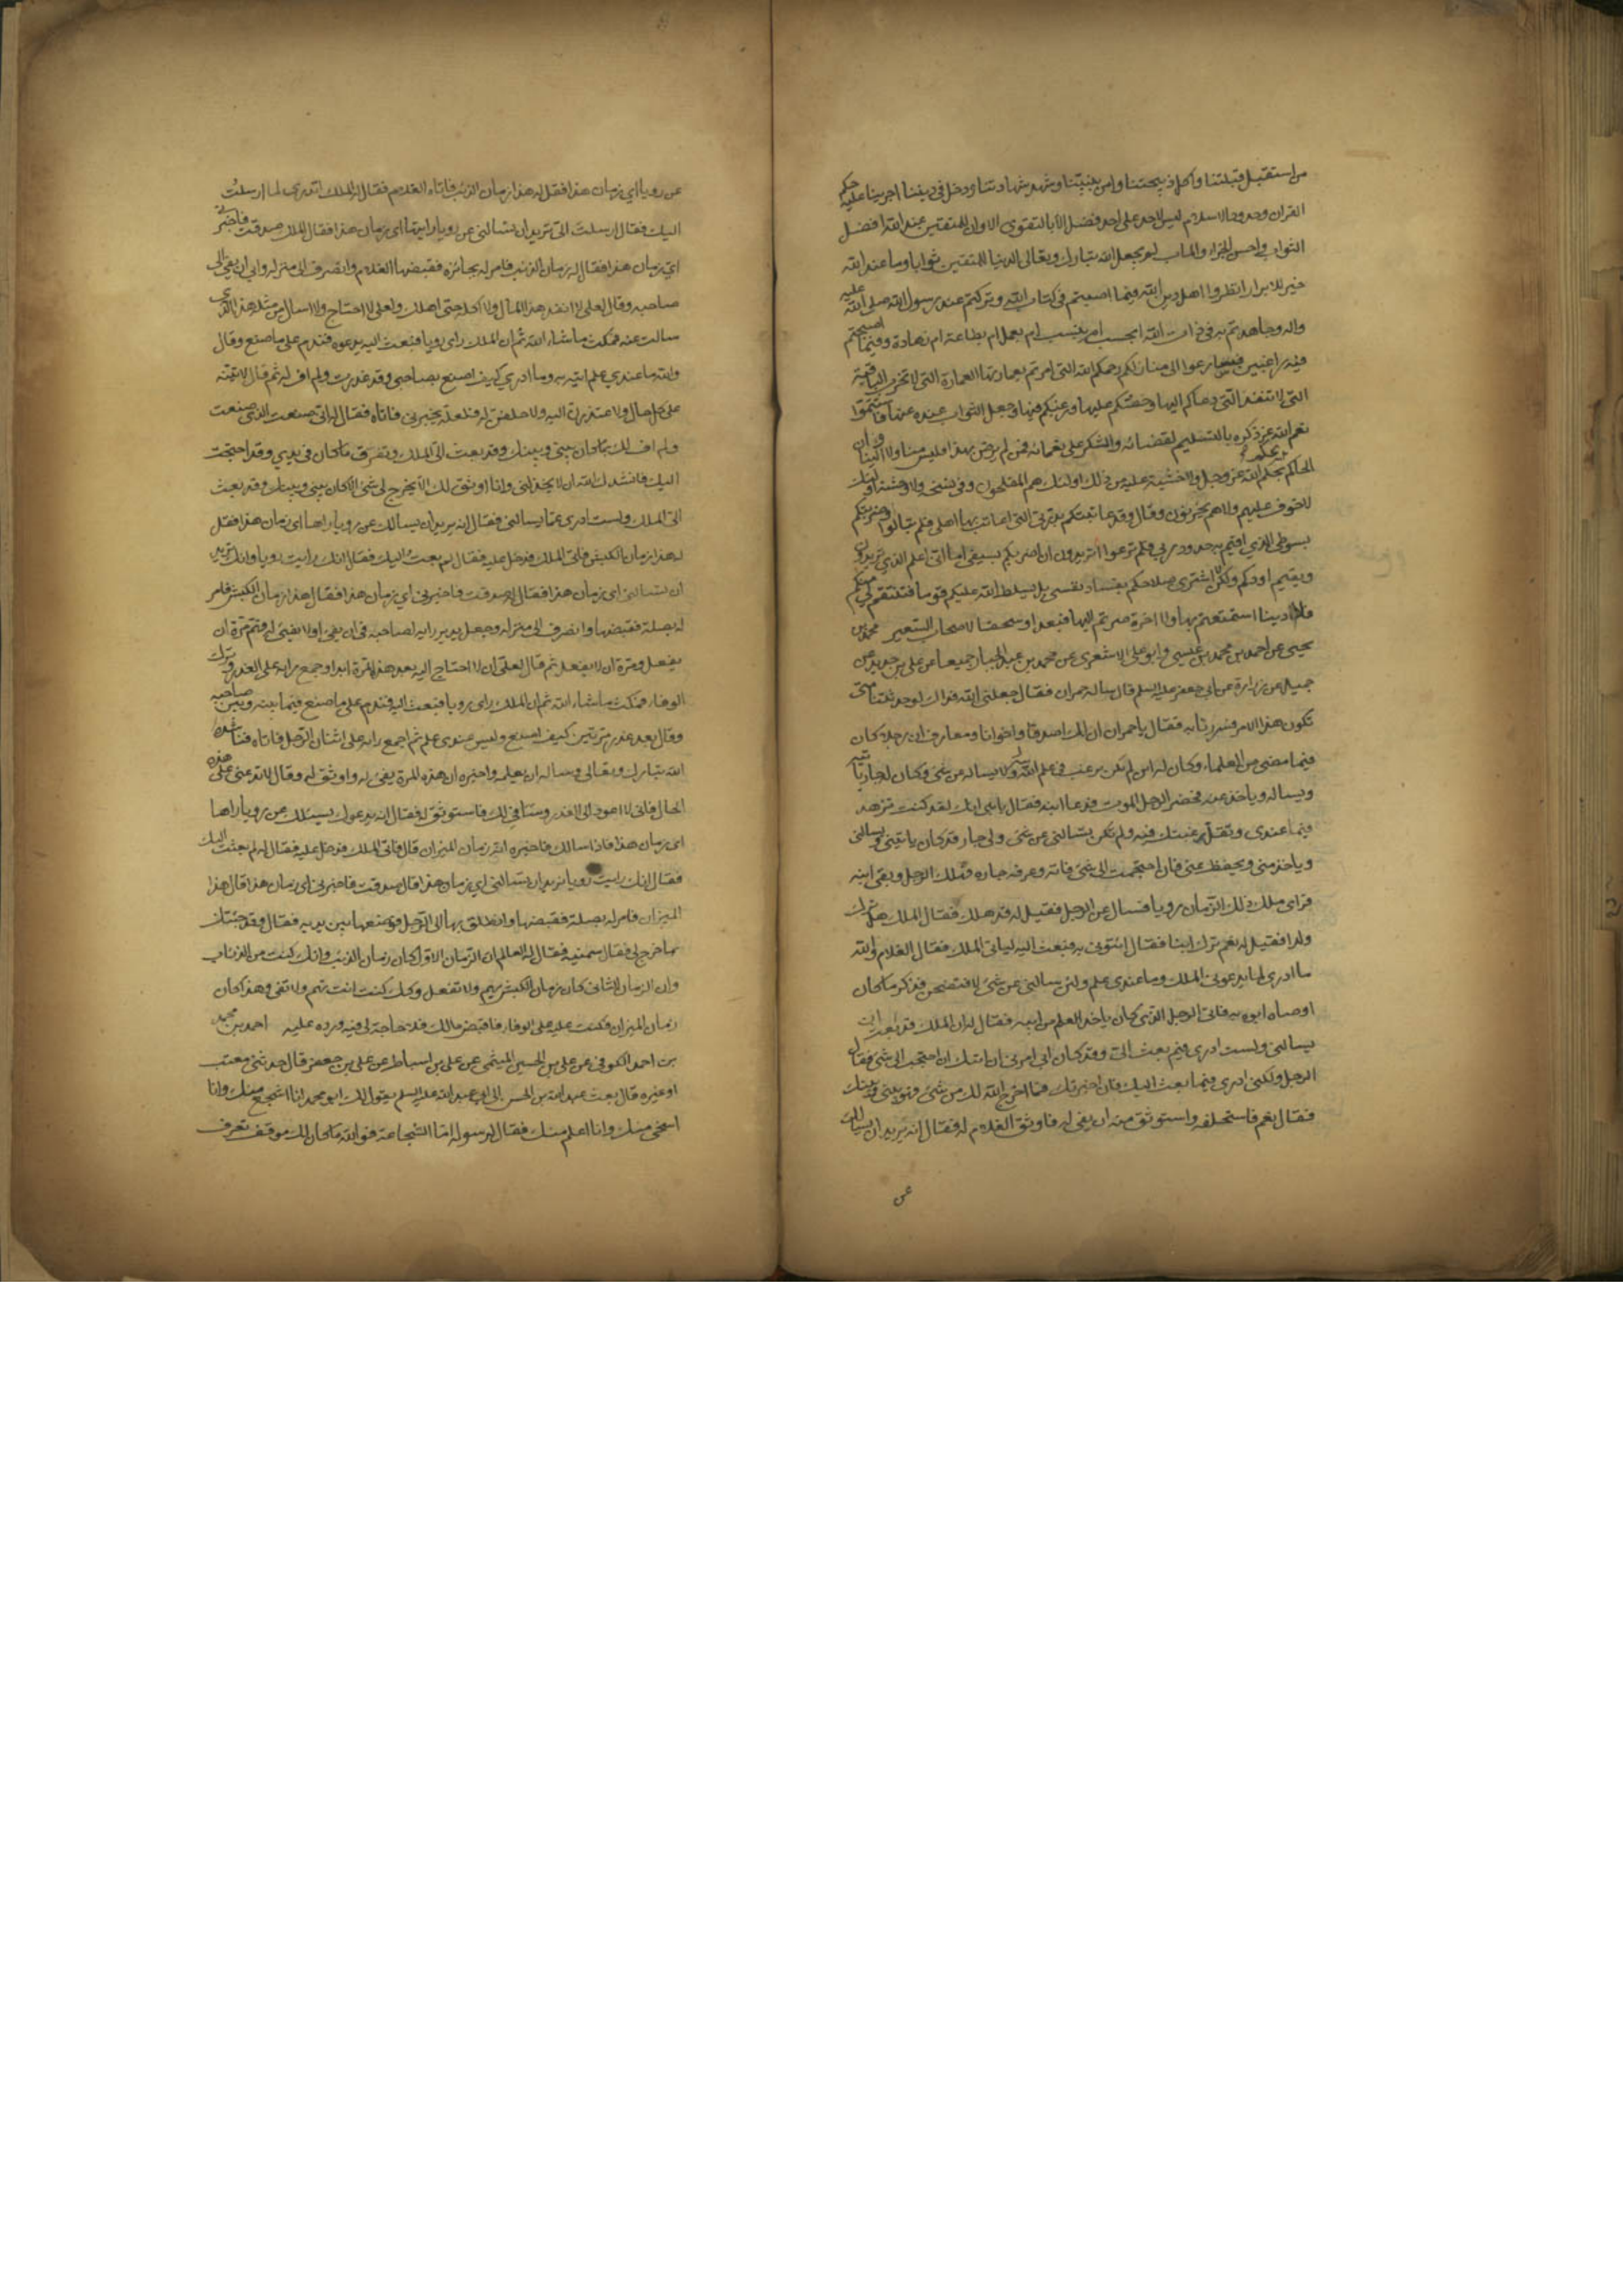 من استقبل قبلتنا واكل ذبيحتنا وامن بنبينا وشهد شهادتنا ودخل في ديننا اجرينا عليه حكم
القران وحدود الاسلام ليس لاحد على احد فضل الا بالتقوى الا وان للمتقين عند الله افضل
الثواب واحسن الجزاء والماب لم يجعل الله تبارك وتعالى الدنيا للمتقين ثوابا وما عند الله
خير للابرار انظروا اهل دين الله فيما اصبتم في كتاب الله وتركتم عند رسول الله صلى الله عليه
واله وجاهدتم به في ذات الله ابحسب ام بنسب ام بعمل ام بطاعة ام زهادة وفيما اصبحتم
فيه راغبين فسارعوا الى منازلكم رحمكم الله التي امرتم بعمارتها العامرة التي لا تخرب الباقية
التي لا تنفد التي دعاكم اليها وحضكم عليها ورغبكم فيها وجعل الثواب عنده عنها فاستتموا
نعم الله عز ذكره بالتسليم لقضائه والشكر على نعمائه فمن لم يرض بهذا فليس منا ولا الينا وان
الحاكم يحكم بحكم الله عز وجل ولا خشية عليه من ذلك اولئك هم المفلحون وفي نسخة ولا وحشة واولئك
لا خوف عليهم ولا هم يحزنون وقال وقد عاتبتكم بدرتي التي اعاتب بها اهلي فلم تبالوا وضربتكم
بسوطي الذي اقيم به حدود ربي فلم ترعووا اتريدون ان اضربكم بسيفي اما اني اعلم الذي تريدون
ويقيم اودكم ولكن لا اشتري صلاحكم بفساد نفسي بل يسلط الله عليكم قوما فتنتقم لي منكم
فلا دنيا استمتعتم بها ولا اخرة صرتم اليها فبعدا وسحقا لاصحاب السعير محمد بن
يحيى عن احمد بن محمد بن عيسى وابو علي الاشعري عن محمد بن عبد الجبار جميعا عن علي بن حديد عن
جميل عن زرارة عن ابي جعفر عليه السلم قال ساله حمران فقال جعلني الله فداك لو حدثتنا متى
يكون هذا الامر فسررنا به فقال يا حمران ان لك اصدقا واخوانا ومعارف ان رجلا كان
فيما مضى من العلماء وكان له ابن لم يكن يرغب في علم ابيه ولا يساله عن شئ وكان له جار ياتيه
ويساله وياخذ عنه فحضر الرجل الموت فدعا ابنه فقال يا بني انك لقد كنت تزهد
فيما عندي وتقل رغبتك فيه ولم تكن تسالني عن شئ ولي جار قد كان ياتيني ويسالني
وياخذ مني ويحفظ عني فان احتجت الى شئ فاته وعرفه جاره فهلك الرجل وبقي ابنه
فراى ملك ذلك الزمان رويا فسال عن الرجل فقيل له قد هلك فقال الملك هل ترك
ولدا فقيل له نعم ترك ابنا فقال ائتوني به فبعث اليه لياتي الملك فقال الغلام والله
ما ادري لما يدعوني الملك وما عندي علم ولئن سالني عن شئ لافتضحن فذكر ما كان
اوصاه ابوه به فاتى الرجل الذي كان ياخذ العلم من ابيه فقال له ان الملك قد بعث الي
يسالني ولست ادري فيم بعث الي وقد كان ابي امرني ان اتيك ان احتجت الى شئ فقال
الرجل ولكني ادري فيما بعث اليك فان اخبرتك فما اخرج الله لك من شئ فهو بيني وبينك
فقال نعم فاستحلفه واستوثق منه ان يفي له فاوثق الغلام له فقال انه يريد ان يسالك
عن
عن رويا اي زمان هذا فقل له هذا زمان الذئب فاتاه الغلام فقال له الملك اتدري لما ارسلت
اليك فقال ارسلت الي تريد ان تسالني عن رويا رايتها اي زمان هذا فقال الملك صدقت فاخبرني
اي زمان هذا فقال له زمان الذئب فامر له بجائزة فقبضها الغلام وانصرف الى منزله وابى ان يفي الى
صاحبه وقال لعلي لا انفد هذا المال ولا اكله حتى اهلك ولعلي لا احتاج ولا اسال من مثل هذا الذي
سالت عنه فمكث ما شاء الله ثم ان الملك راى رويا فبعث اليه يدعوه فندم على ما صنع وقال
والله ما عندي علم اتيه به وما ادري كيف اصنع بصاحبي وقد غدرت ولم اف له ثم قال لاتينه
على كل حال ولاعتذرن اليه ولاحلفن له فلعله يخبرني فاتاه فقال له اني صنعت الذي صنعت
ولم اف لك بما كان بيني وبينك وقد بعث الي الملك وتفرق ما كان في يدي وقد احتجت
اليك فانشدك الله ان لا تخذلني وانا اوثق لك الا يخرج لي شئ الا كان بيني وبينك وقد بعث
الي الملك ولست ادري عما يسالني فقال انه يريد ان يسالك عن رويا راها اي زمان هذا فقل
له هذا زمان الكبش فاتى الملك فدخل عليه فقال لم بعثت اليك فقال انك رايت رويا وانك تريد
ان تسالني اي زمان هذا فقال له صدقت فاخبرني اي زمان هذا فقال هذا زمان الكبش فامر
له بصلة فقبضها وانصرف الى منزله وجعل يدير رايه لصاحبه في ان يفي او لا يفي له فهم مرة ان
يفعل ومرة ان لا يفعل ثم قال لعلي ان لا احتاج اليه بعد هذه المرة ابدا واجمع رايه على الغدر وترك
الوفاء فمكث ما شاء الله ثم ان الملك راى رويا فبعث اليه فندم على ما صنع فيما بينه وبين صاحبه
وقال بعد غدر مرتين كيف اصنع وليس عندي علم ثم اجمع رايه على اتيان الرجل فاتاه فناشده
الله تبارك وتعالى وساله ان يعلمه واخبره ان هذه المرة يفي له واوثق له وقال لا تدعني على هذه
الحال فاني لا اعود الى الغدر وسافي لك فاستوثق له فقال انه يدعوك يسئلك عن رويا راها
اي زمان هذا فاذا سالك فاخبره انه زمان الميزان قال فاتى الملك فدخل عليه فقال له لم بعثت اليك
فقال انك رايت رويا تريد ان تسالني اي زمان هذا قال صدقت فاخبرني اي زمان هذا قال هذا
الميزان فامر له بصلة فقبضها وانطلق بها الى الرجل فوضعها بين يديه فقال وقد جئتك
بما خرج لي فقاسمنيه فقال له العالم ان الزمان الاول كان زمان الذئب وانك كنت من الذئاب
وان الزمان الثاني كان زمان الكبش يهم ولا يفعل وكذلك كنت انت تهم ولا تفي وهذا كان
زمان الميزان فكنت عليه على الوفاء فاقبض مالك فلا حاجة لي فيه ورده عليه احمد بن محمد
بن احمد الكوفي عن علي بن الحسين الميثمي عن علي بن اسباط عن علي بن جعفر قال حدثني معتب
او غيره قال بعث عبد الله بن الحسن الى ابي عبد الله عليه السلم يقول لك ابو محمد انا اشجع منك وانا
اسخى منك وانا اعلم منك فقال لرسوله اما الشجاعة فوالله ما كان لك موقف تعرف